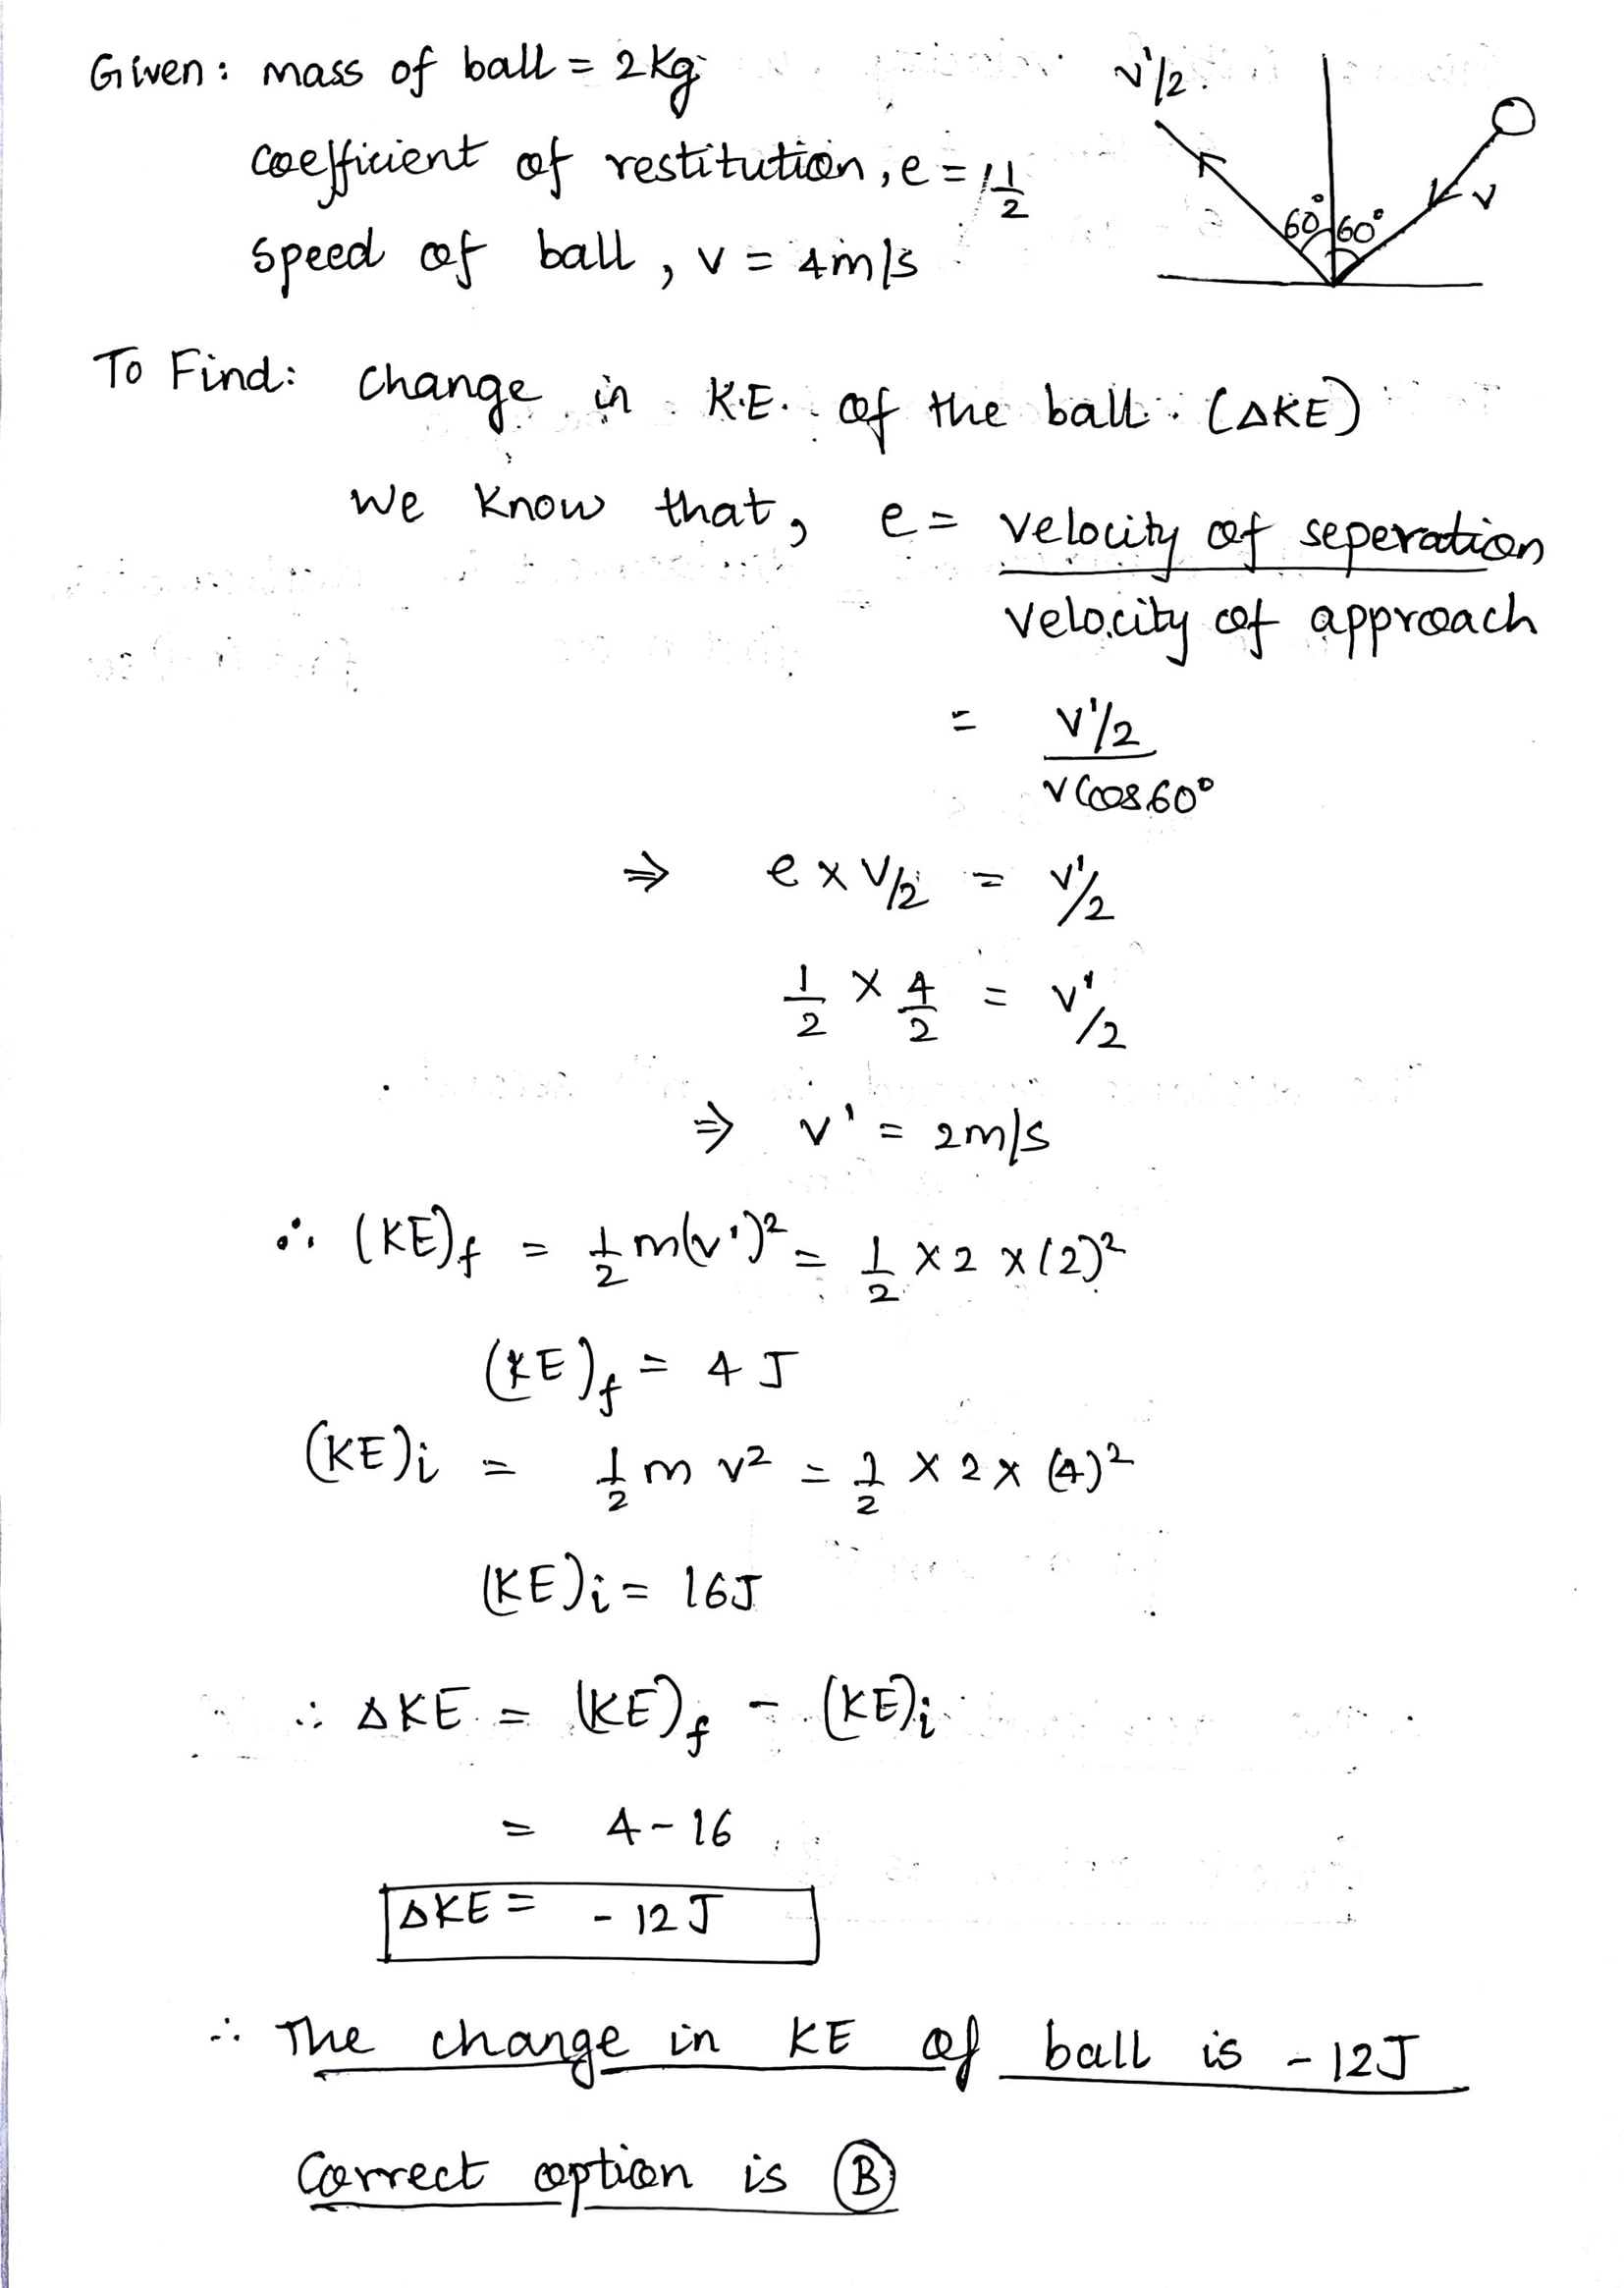 Given: mass of ball = 2kg
coefficient of restitution, e = 1/2
speed of ball, v = 4m/s
v'/2
60° 60°
v
To Find: change in K.E. of the ball. (ΔKE)
we know that, e = velocity of seperation
velocity of approach
= v'/2
vcos60°
⇒ e × v/2 = v'/2
1/2 × 4/2 = v'/2
⇒ v' = 2m/s
∴ (KE)f = 1/2 m(v')² = 1/2 × 2 × (2)²
(KE)f = 4 J
(KE)i = 1/2 m v² = 1/2 × 2 × (4)²
(KE)i = 16J
∴ ΔKE = (KE)f - (KE)i
= 4-16
ΔKE = -12 J
∴ The change in KE of ball is -12J
Correct option is B